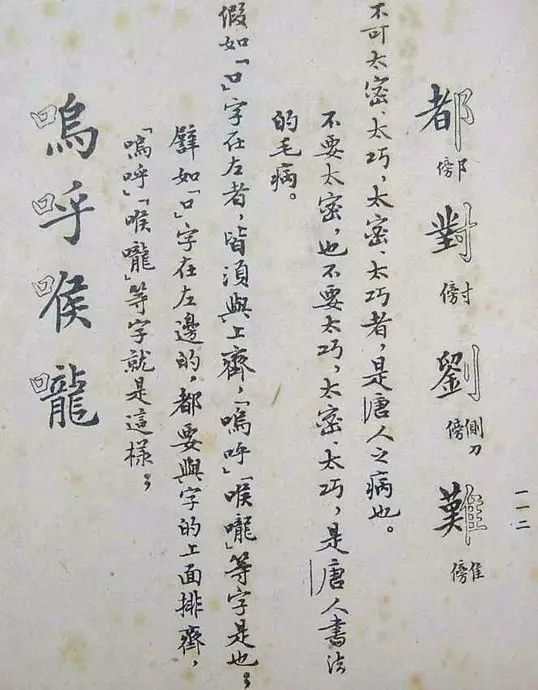 一一二
都 對 劉 難
阝傍 寸傍 側刀傍 隹傍
不可太密、太巧，太密、太巧者，是唐人之病也。
不要太密，也不要太巧，太密、太巧，是唐人書法
的毛病。
假如「口」字在左者，皆須與上齊，「嗚呼」「喉嚨」等字是也。
譬如「口」字在左邊的，都要與字的上面排齊，
「嗚呼」「喉嚨」等字就是這樣。
嗚呼喉嚨